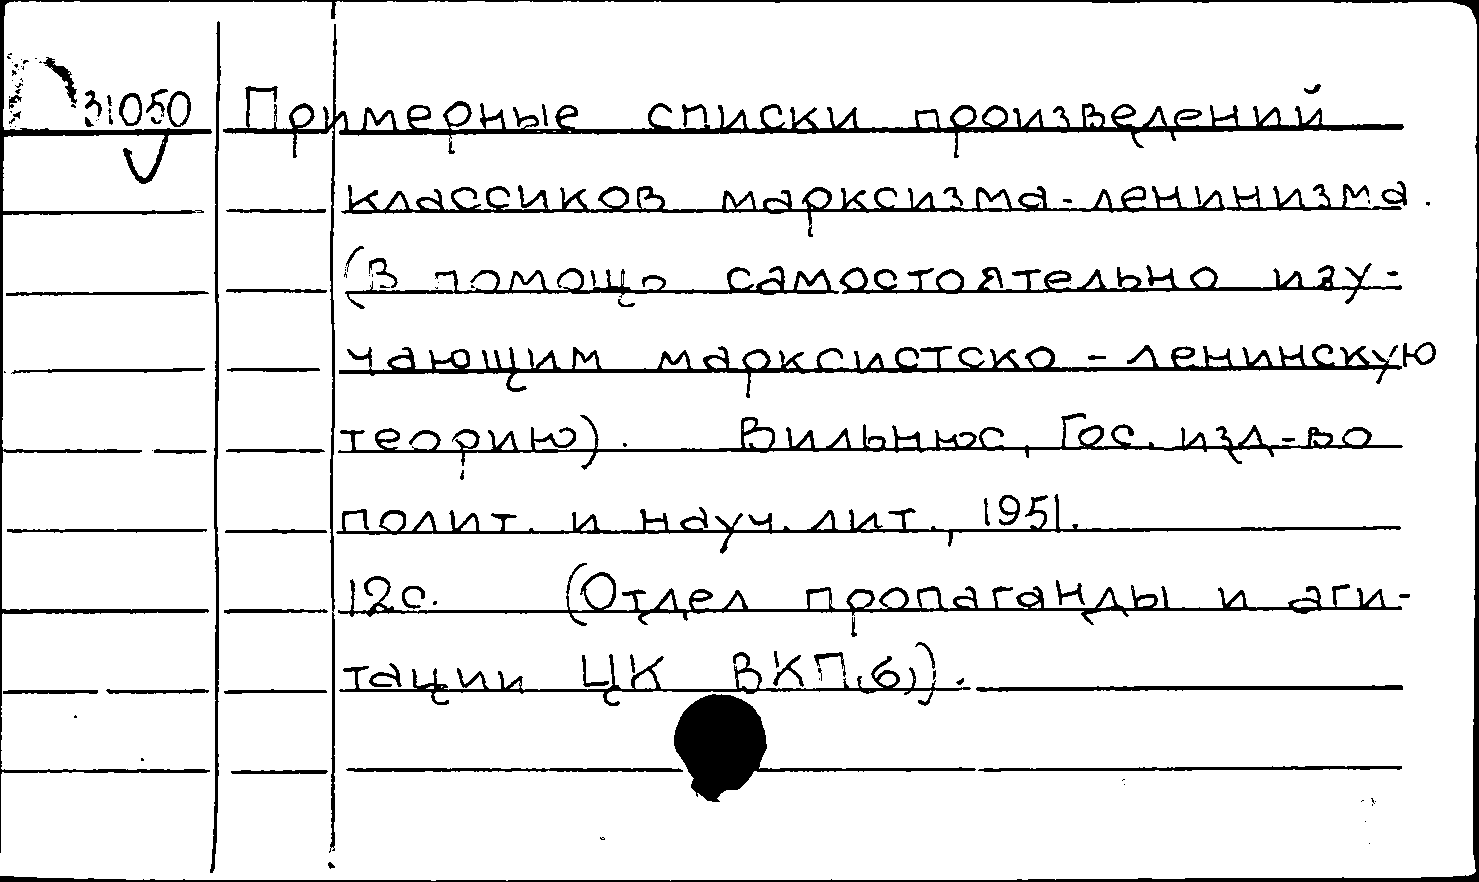 31050 Примерные списки произведений
классиков марксизма-ленинизма.
(В помощь самостоятельно изу-
чающим марксистско-ленинскую
теорию). Вильнюс, Гос. изд-во
полит. и науч. лит., 1951.
12с. (Отдел пропаганды и аги-
тации ЦК ВКП(б)).